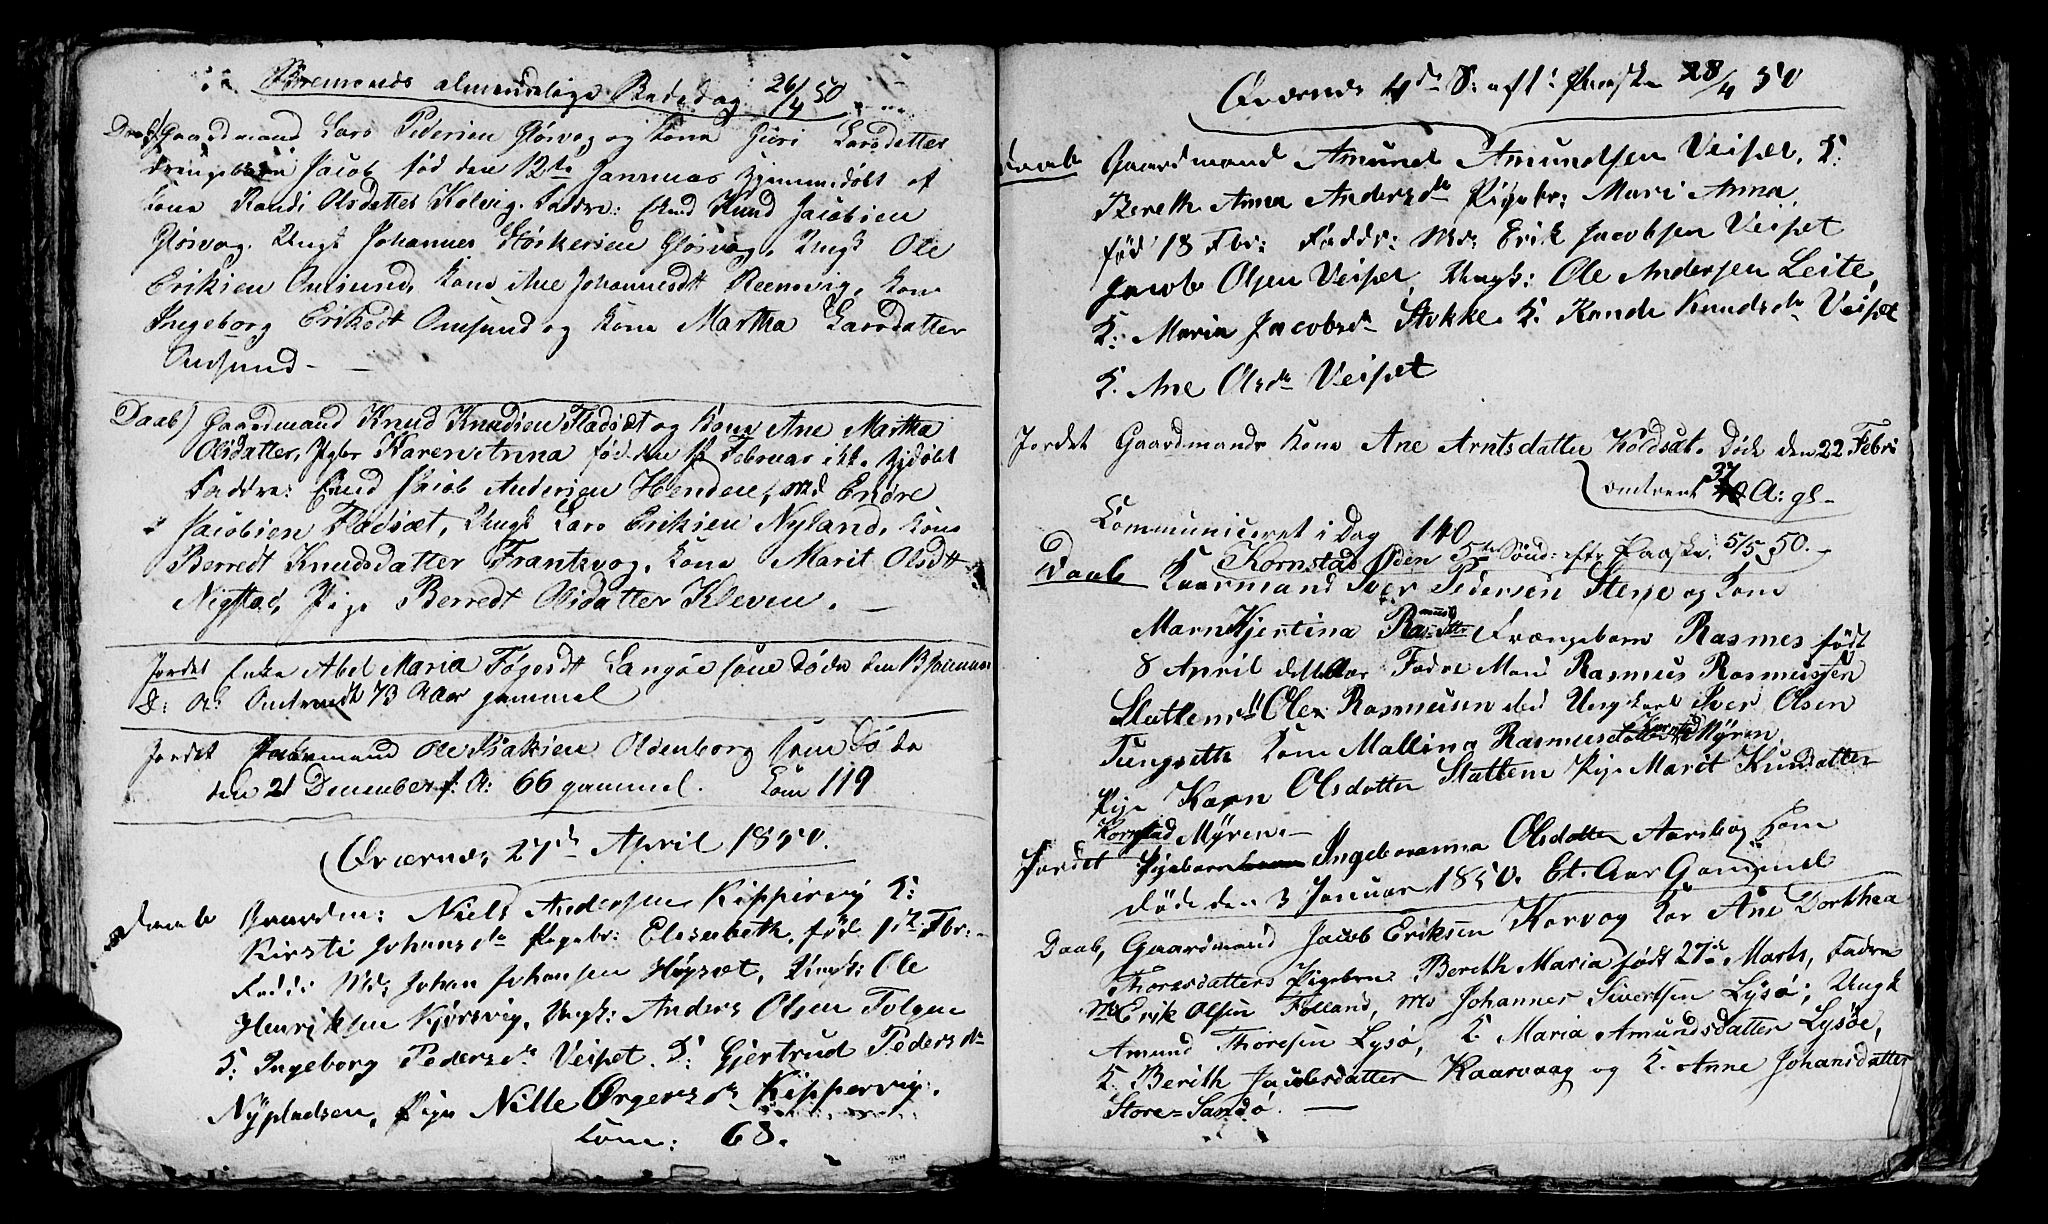 Bremsnes almindelige Bededag 26/4 50
Daab) Gaardmand Lars Pedersen Gløsvog og kone Guri Larsdatter
drengebarn Jacob fød den 12te Januar hjemmedøbt af
kone Randi Olsdatter Kolvig. Faddre: Knud Jacobsen
Gløsvog. Ungk Johannes Størkersen Gløsvog, Ungk Ole
Eriksen Omsund, kone Ane Johannesdtt Reensvig, kone
Ingeborg Eriksdtt Omsund og kone Martha Larsdatter
Omsund -
Daab) Gaardmand Knud Knudsen Fladsæt og kone Ane Martha
Olsdatter, Pgbr Karen Anna fød den Februar ikke hjdøbt
Faddre: Jacob Andersen Henden, md Endre
Jacobsen Fladsæt, Ungk Lars Eriksen Nyland, kone
Berredt Knudsdatter Frantzvog, kone Marit Olsdtt
Nigstad, Pige Berredt Olsdatter Kleven. -
Jordet Enke Abel Maria Langøe som døde den
D: A: Omtrendt 73 Aar gammel
Jordet Ole Isaksen Oldenborg som døde
den 21 December f: A: 66 gammel. Kom 119
Qværnæs 27de April 1850.
Daab Gaardm: Niels Andersen Kippervig K:
Kirsti Johansdr Pigebr: Elisabeth, fød Fbr:
Fadd: Md: Johan Johansen Høysæt, Ungk: Ole
Henriksen Kjørsvig, Ungk: Anders Olsen Folgen
K: Ingeborg Pedersdr Veiset. K: Gjertrud Pedersdr
Nypladsen, Pige Nille Ørgensdr Kippervig.
Kom: 68.
Qværnes 4de S: eft: Paaske 28/4 50
Daab Gaardmand Amund Amundsen Veiset, K:
Bereth Anna Andersdr Pigebr: Mari Anna,
fød 18 Fbr: Faddr: Md: Erik Jacobsen Veiset
Jacob Olsen Veiset, Ungk: Ole Andersen Leite
K: Maria Jacobsdr Stokke. K. Rande Knudsdr Veiset
K. Ane Olsdr Veiset
Jordet Gaardmands kone Ane Arntsdatter Koldsæt. Døde den 22 Febri
omtrent 37 A: gl-
Communiceret i Dag 140
Kornstad den 5te Sønd: efter Paaske, 5/5 50. -
Daab Iver Pedersen Stene og kone
Maren Kjertina Rasmusdtr Drængebarn Rasmus født
8 April dette Aar Fadre Mand Rasmus Rasmussen
Slattem Ole Rasmusen Ungkarl Iver Olsen
Tungseth kone Mallina Rasmusdatter Kornstad Myren
Pige Karn Olsdatter Slattem Pige Marit Knudatter
Kornstad Myren -
Jordet Pigebarn Ingeboranna Olsdatter Aarsbog som
døde den 3 Januar 1850. Et Aar Gammel
Daab, Gaardmand Jacob Eriksen Korvog kor Ane Dorthea
Thoresdatters Pigebrn Bereth Maria født 27de Marts, Fadre
Md Erik Olsen Folland, Md Johannes Sivertsen Lysø; Ungk
Amund Thoresen Lysø, K. Maria Amundsdatter Lysøe,
K. Berith Jacobsdatter Kaarvaag og K. Anne Johansdatter
Store-Sandø. -